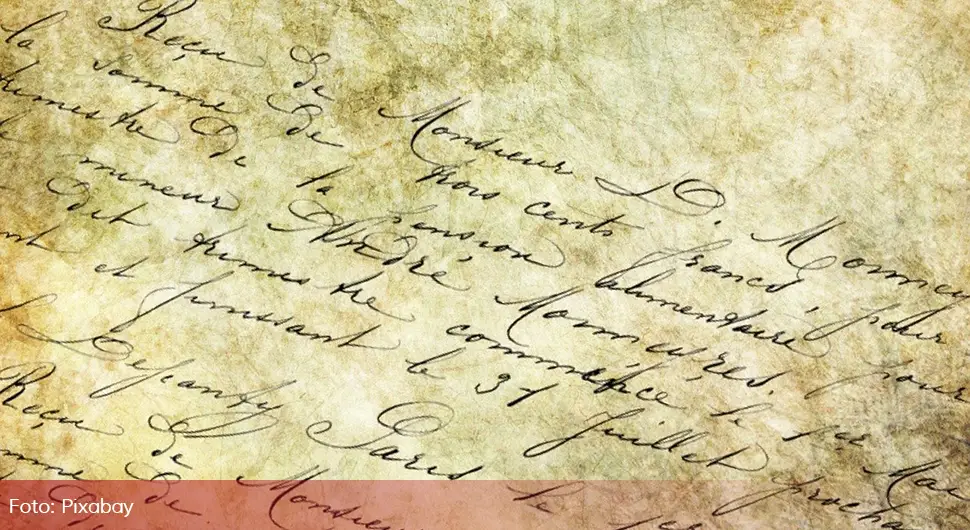 Reçu de Monsieur D. Monney
la somme de trois cents francs, pour
trimestre de la Pension alimentaire pour
mineur André Monneyres.
dit trimestre commence le 1er Mai
et finissant le 31 Juillet prochain
Paris le 1er
Reçu de Monsieur
Foto: Pixabay